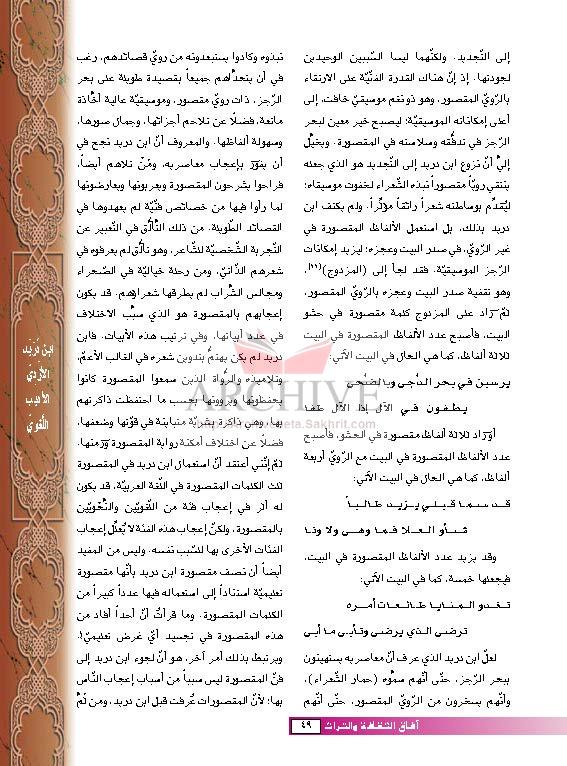 إلى التّجديد. ولكنّهما ليسا السّببين الوحيدين
لجودتها. إذ إنّ هناك القدرة الفنّيّة على الارتقاء
بالرّويّ المقصور، وهو ذو نغم موسيقيّ خافت، إلى
أعلى إمكاناته الموسيقيّة؛ ليصبح خير معين لبحر
الرّجز في تدفّقه وسلاسته في المقصورة. ويخيّل
إليّ أنّ نزوع ابن دريد إلى التّجديد هو الذي جعله
ينتقي رويّاً مقصوراً نبذه الشّعراء لخفوت موسيقاه؛
ليُقدّم بوساطته شعراً رائقاً مؤثّراً. ولم يكتف ابن
دريد بذلك، بل استعمل الألفاظ المقصورة في
غير الرّويّ، في صدر البيت وعجزه؛ ليزيد إمكانات
الرّجز الموسيقيّة. فقد لجأ إلى (المزدوج)
وهو تقفية صدر البيت وعجزه بالرّويّ المقصور،
ثمّ زاد على المزدوج كلمة مقصورة في حشو
البيت، فأصبح عدد الألفاظ المقصورة في البيت
ثلاثة ألفاظ، كما هي الحال في البيت الآتي:
يرسبن في بحر الدّجى وبالضّحى
يطفون في الآل إذا الآل طفا
أو زاد ثلاثة ألفاظ مقصورة في الحشو، فأصبح
عدد الألفاظ المقصورة في البيت مع الرّويّ أربعة
ألفاظ، كما هي الحال في البيت الآتي:
قد سما قبلي يزيد طالباً
شأو العلا فما وهى ولا ونا
وقد يزيد عدد الألفاظ المقصورة في البيت،
فيجعلها خمسة، كما في البيت الآتي:
تغدو المنايا طائعات أمره
ترضى الذي يرضى وتأبى ما أبى
لعلّ ابن دريد الذي عرف أنّ معاصريه يستهينون
ببحر الرّجز، حتّى أنّهم سمّوه (حمار الشّعراء)،
وأنّهم يسخرون من الرّويّ المقصور، حتّى أنّهم
نبذوه وكادوا يستبعدونه من رويّ قصائدهم، رغب
في أن يتحدّاهم جميعاً بقصيدة طويلة على بحر
الرّجز، ذات رويّ مقصور، وموسيقية عالية أخّاذة
ماتعة، فضلاً عن تلاحم أجزائها، وجمال صورها،
وسهولة ألفاظها. والمعروف أنّ ابن دريد نجح في
أن يفوز بإعجاب معاصريه، ومَنْ تلاهم أيضاً،
فراحوا يشرحون المقصورة ويعربونها ويعارضونها
لما رأوا فيها من خصائص فنّيّة لم يعهدوها في
القصائد الطّويلة. من ذلك التّألّق في التّعبير عن
التّجربة الشّخصيّة للشّاعر، وهو تألّق لم يعرفوه في
شعرهم الذّاتيّ، ومن رحلة خياليّة في الصّحراء
ومجالس الشّراب لم يطرقها شعراؤهم. قد يكون
إعجابهم بالمقصورة هو الذي سبّب الاختلاف
في عدد أبياتها، وفي ترتيب هذه الأبيات. فابن
دريد لم يكن يهتمّ بتدوين شعره في الغالب الأعمّ،
وتلاميذه والرّواة الذين سمعوا المقصورة كانوا
يحفظونها ويروونها بحسب ما احتفظت ذاكرتهم
بها، وهي ذاكرة بشريّة متباينة في قوّتها وضعفها،
فضلاً عن اختلاف أمكنة رواية المقصورة وزمنها.
ثمّ إنّني أعتقد أنّ استعمال ابن دريد في المقصورة
ثلث الكلمات المقصورة في اللّغة العربيّة، قد يكون
له أثر في إعجاب فئة من اللّغويّين والنّحْويّين
بالمقصورة، ولكنّ إعجاب هذه الفئة لا يُعلّل إعجاب
الفئات الأخرى بها للسّبب نفسه. وليس من المفيد
أيضاً أن نصف مقصورة ابن دريد بأنّها مقصورة
تعليميّة استناداً إلى استعماله فيها عدداً كبيراً من
الكلمات المقصورة. وما قرأتُ أنّ أحداً أفاد من
هذه المقصورة في تجسيد أيّ غرض تعليميّ!.
ويرتبط بذلك أمر آخر، هو أنّ لجوء ابن دريد إلى
فنّ المقصورة ليس سبباً من أسباب إعجاب النّاس
بها؛ لأنّ المقصورات عُرفت قبل ابن دريد، ومن ثَمَّ
ابن دُرَيْد
الأَزْديّ
الأديب
اللُّغويّ
ARCHIVE
آفاق الثقافة والتراث
٤٩